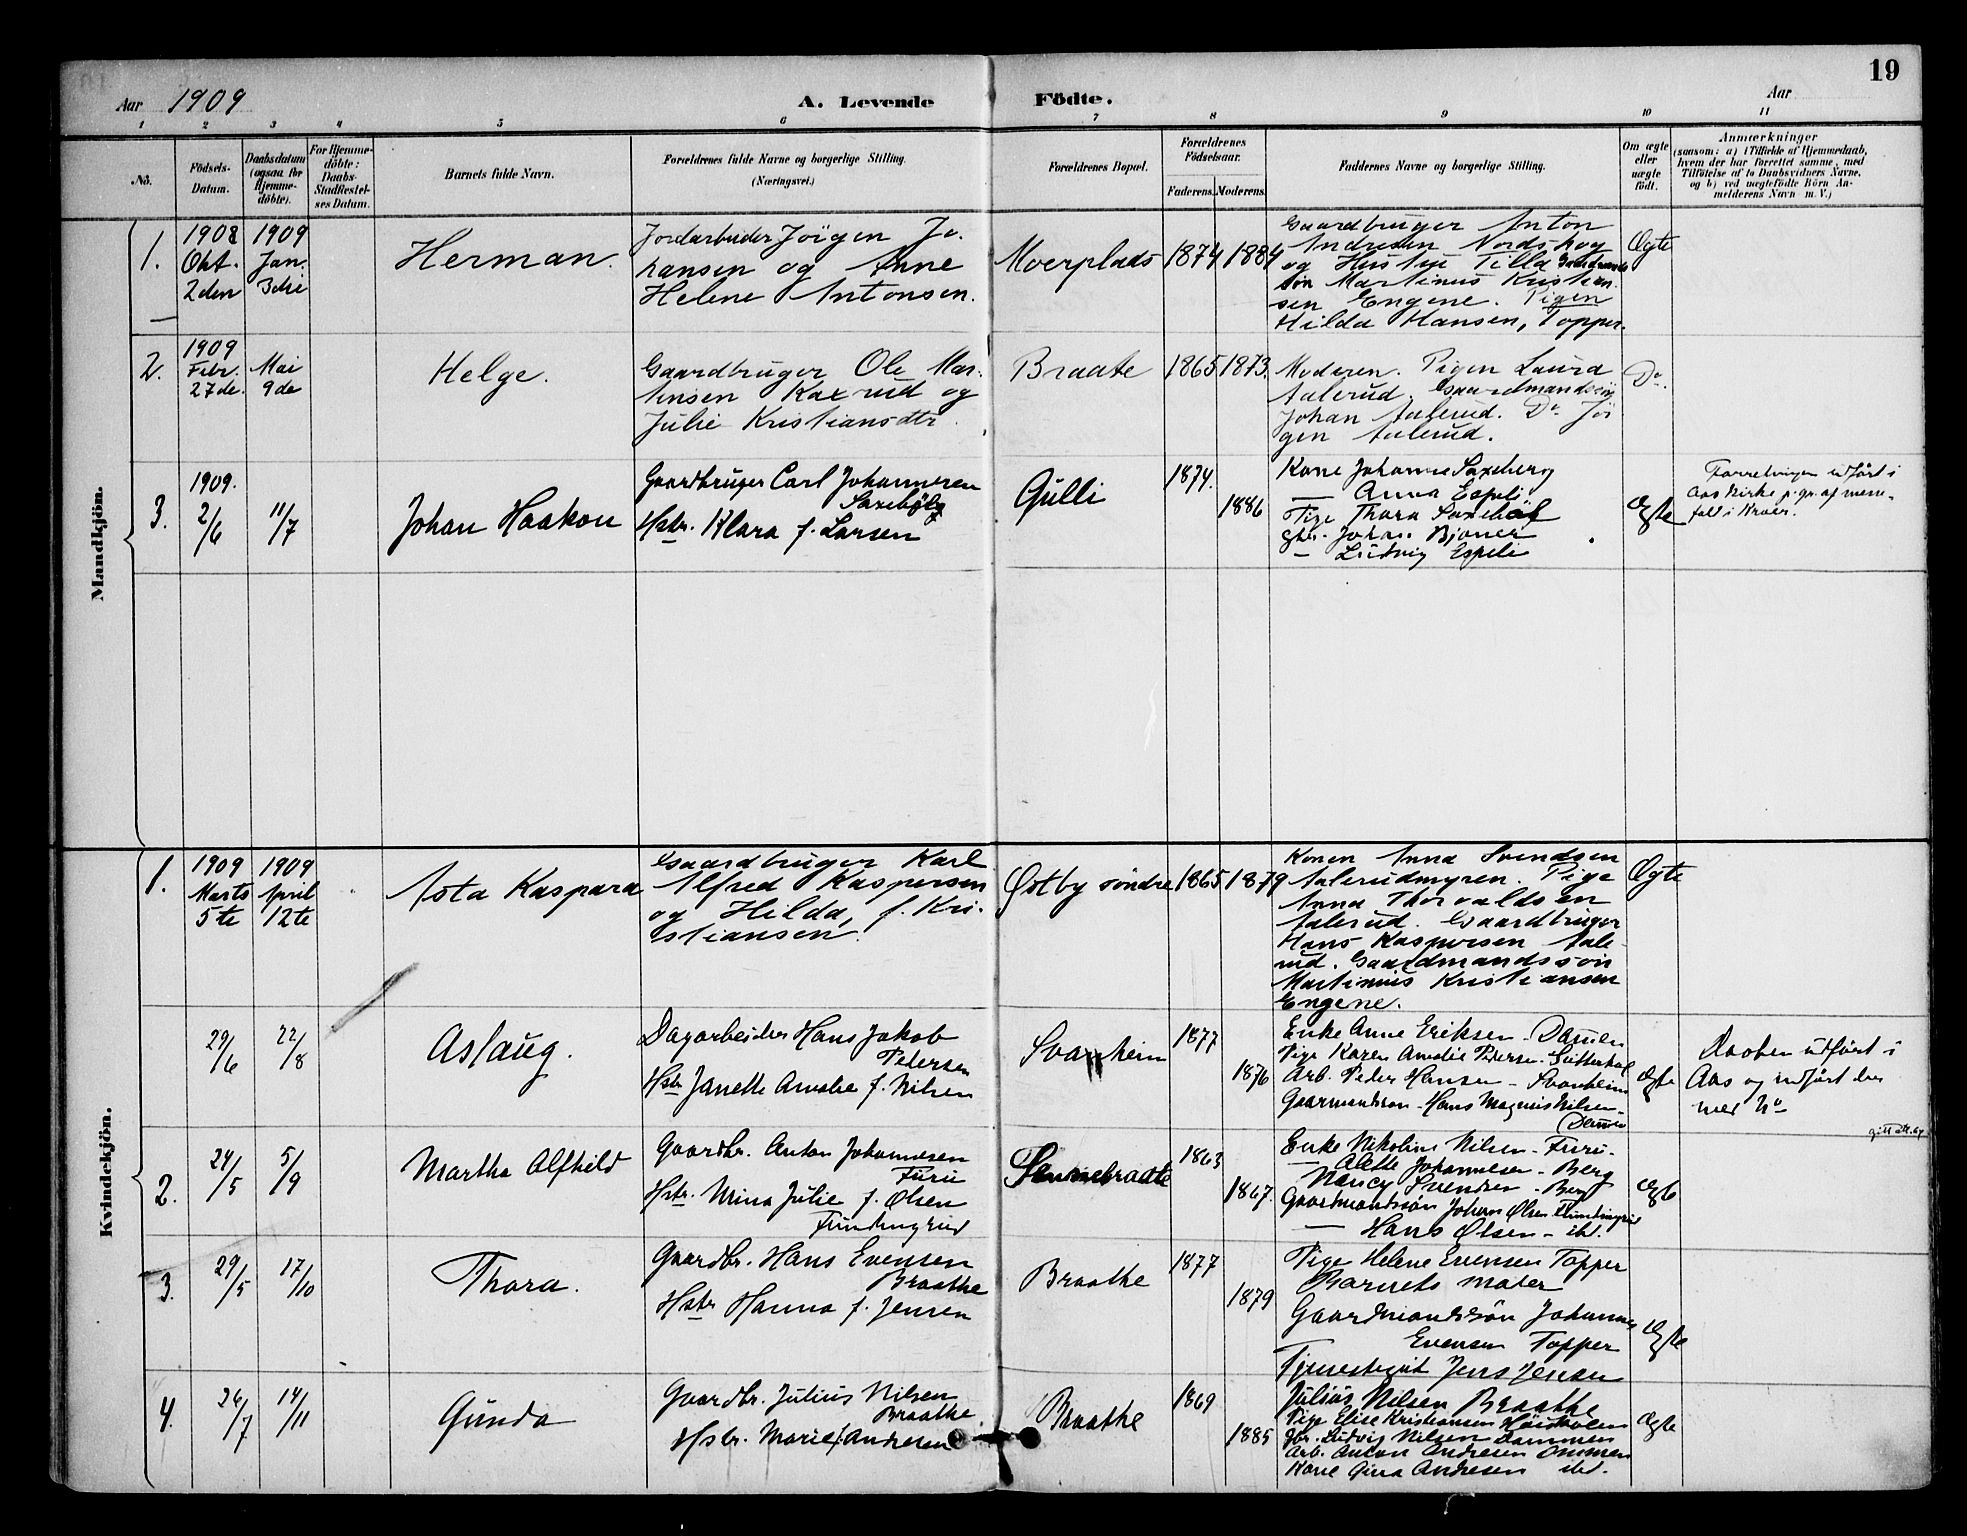 19
Aar 1909
A. Levende Födte.
Aar
1 2 3 4 5 6 7 8 9 10 11
No.
Födsels-
Datum.
Daabsdatum
(ogsaa for
Hjemme-
döbte).
For Hjemme-
döbte:
Daabs-
Stadfæstel-
ses Datum.
Barnets fulde Navn.
Forældrenes fulde Navne og borgerlige Stilling.
(Næringsvei.)
Forældrenes Bopæl.
Forældrenes
Födselsaar.
Faderens. Moderens.
Faddernes Navne og borgerlige Stilling.
Om ægte
eller
uægte
födt.
Anmærkninger
(saasom: a) i Tilfælde af Hjemmedaab,
hvem der har forrettet samme, med
Tilföielse af to Daabsvidners Navne,
og b) ved uægtefödte Börn An-
melderens Navn m. V.)
Mandkjön.
1.
1908
Okt.
2den
1909
Jan.
3die
Herman.
Jordarbeider Jörgen Jo-
hansen og Anne
Helene Antonsen.
Moerplads
1874 1884
Gaardbruger Anton
Andresen Nordskog
og Hustru Tilla Gaardmands
sön Martinus Kristian-
sen Engene. Pigen
Hilda Hansen, Topper.
Ægte
2.
1909
Febr.
27de.
Mai
9de
Helge.
Gaardbruger Ole Mar-
tinsen Kaxrud og
Julie Kristiansdtr.
Braate
1865 1873.
Moderen. Pigen Laura
Aalerud. Gaardmandssön
Johan Aalerud. Do Jör
gen Aalerud.
Do.
3.
1909.
2/6
11/7
Johan Haakon
Gaardbruger Carl Johannesen
Saxebøl
Hstr. Klara f. Larsen
Gulli
1874.
1886
Kone Johanne Saxeberg
— Anna Espeli
Pige Thora Saxebøl
gbr. Johan Bjaner
— Ludvig Espeli
Ægte
Forretningen udført i
Aas Kirke p. gr. af
Kroer.
Kvindekjön.
1.
1909
Marts
5te
1909
April
12te
Asta Kaspara
Gaardbruger Karl
Alfred Kaspersen
og Hilda, f. Kri-
stiansen.
Østby söndre
1865 1879
Konen Anna Svendsen
Aalerudmyren. Pige
Anna Thorvaldsen
Aalerud. Gaardbruger
Hans Kaspersen Aale-
rud. Gaardmandssön
Martinius Kristiansen
Engene.
Ægte
29/6
22/8
Aslaug.
Dagarbeider Hans Jakob
Pedersen
Hstr Janette Amalie f. Nilsen
Svanheim
1877
1876
Enke Anne Eriksen - Damen
Pige Karen Amalie Pedersen -
Arb. Peder Hansen - Svanheim
Gaarmandssøn Hans Magnus Nilsen -
Damen
Ægte
Daaben udført i
Aas og indført der
med No
2.
24/5
5/9
Martha Alfhild
Gaardbr. Anton Johannesen
Furu
Hstr. Mina Julie f. Olsen
Fundingrud
1863
1867.
Enke Nikoline Nilsen - Furu -
— Alette Johannesen - Berg
Nancy Svendsen - Berg
Gaardmandssøn Johan Olsen Fundingrud
— Hans Olsen - ibd.
Ægte
3.
29/5
17/10
Thora.
Gaardbr. Hans Evensen
Braathe
Hstr Hanna f. Jensen
Braathe
1877
1879
Pige Helene Evensen Topper
Barnets moder
Gaardmandssøn Johannes
Evensen Topper
Tjenestegut Jens Jensen
Ægte
4.
26/7
14/11
Gunda
Gaardbr. Julius Nilsen
Braathe.
Hstr. Marie f. Andresen
Braathe
1869
1885
Julius Nilsen Braathe
Pige Elise Kristiansen
Gbr. Ludvig Nilsen Dammen
Arb. Anton Andresen
Kone Gina Andresen ibd.
Ægte